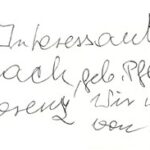 Interessant
ach, geb. Pf
Lorenz Wir
von